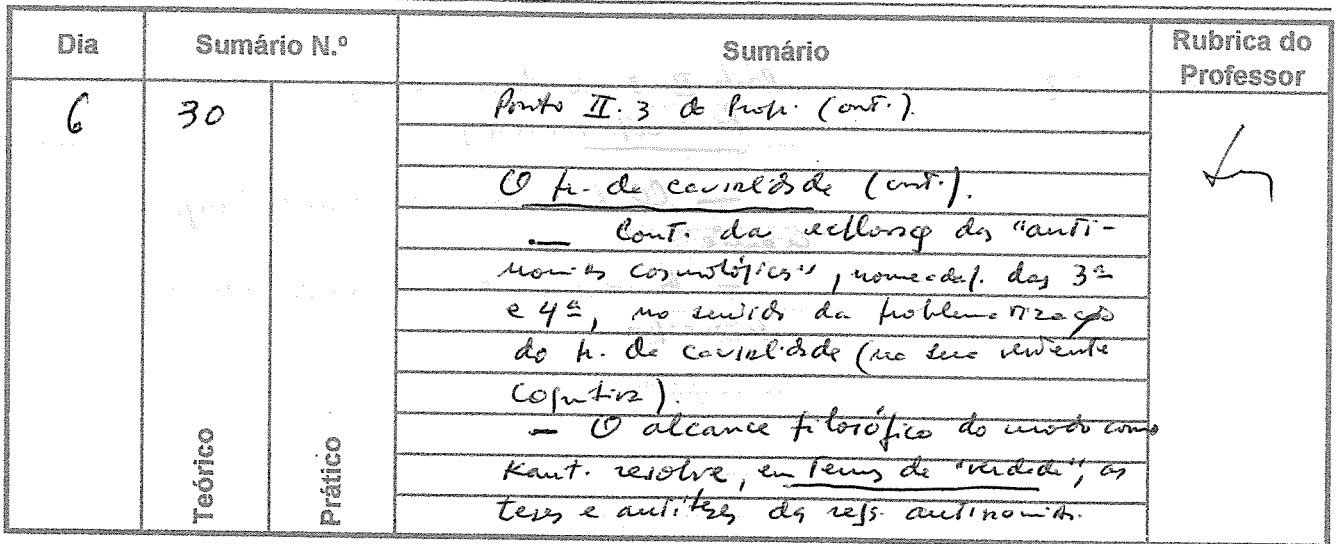 Dia Sumário N.º Sumário Rubrica do Professor
6 30 Ponto II. 3 do Prof. (cont.).
O pr. de causalidade (cont.).
— Cont. da reflexão das "anti-
nomias cosmológicas", nomeadaf. das 3ª
e 4ª, no sentido da problematização
do pr. de causalidade (na sua vertente
cognitiva).
— O alcance filosófico do modo como
Kant. resolve, em termos de "verdade", as
teses e antíteses das refs. antinomias.
Teórico
Prático